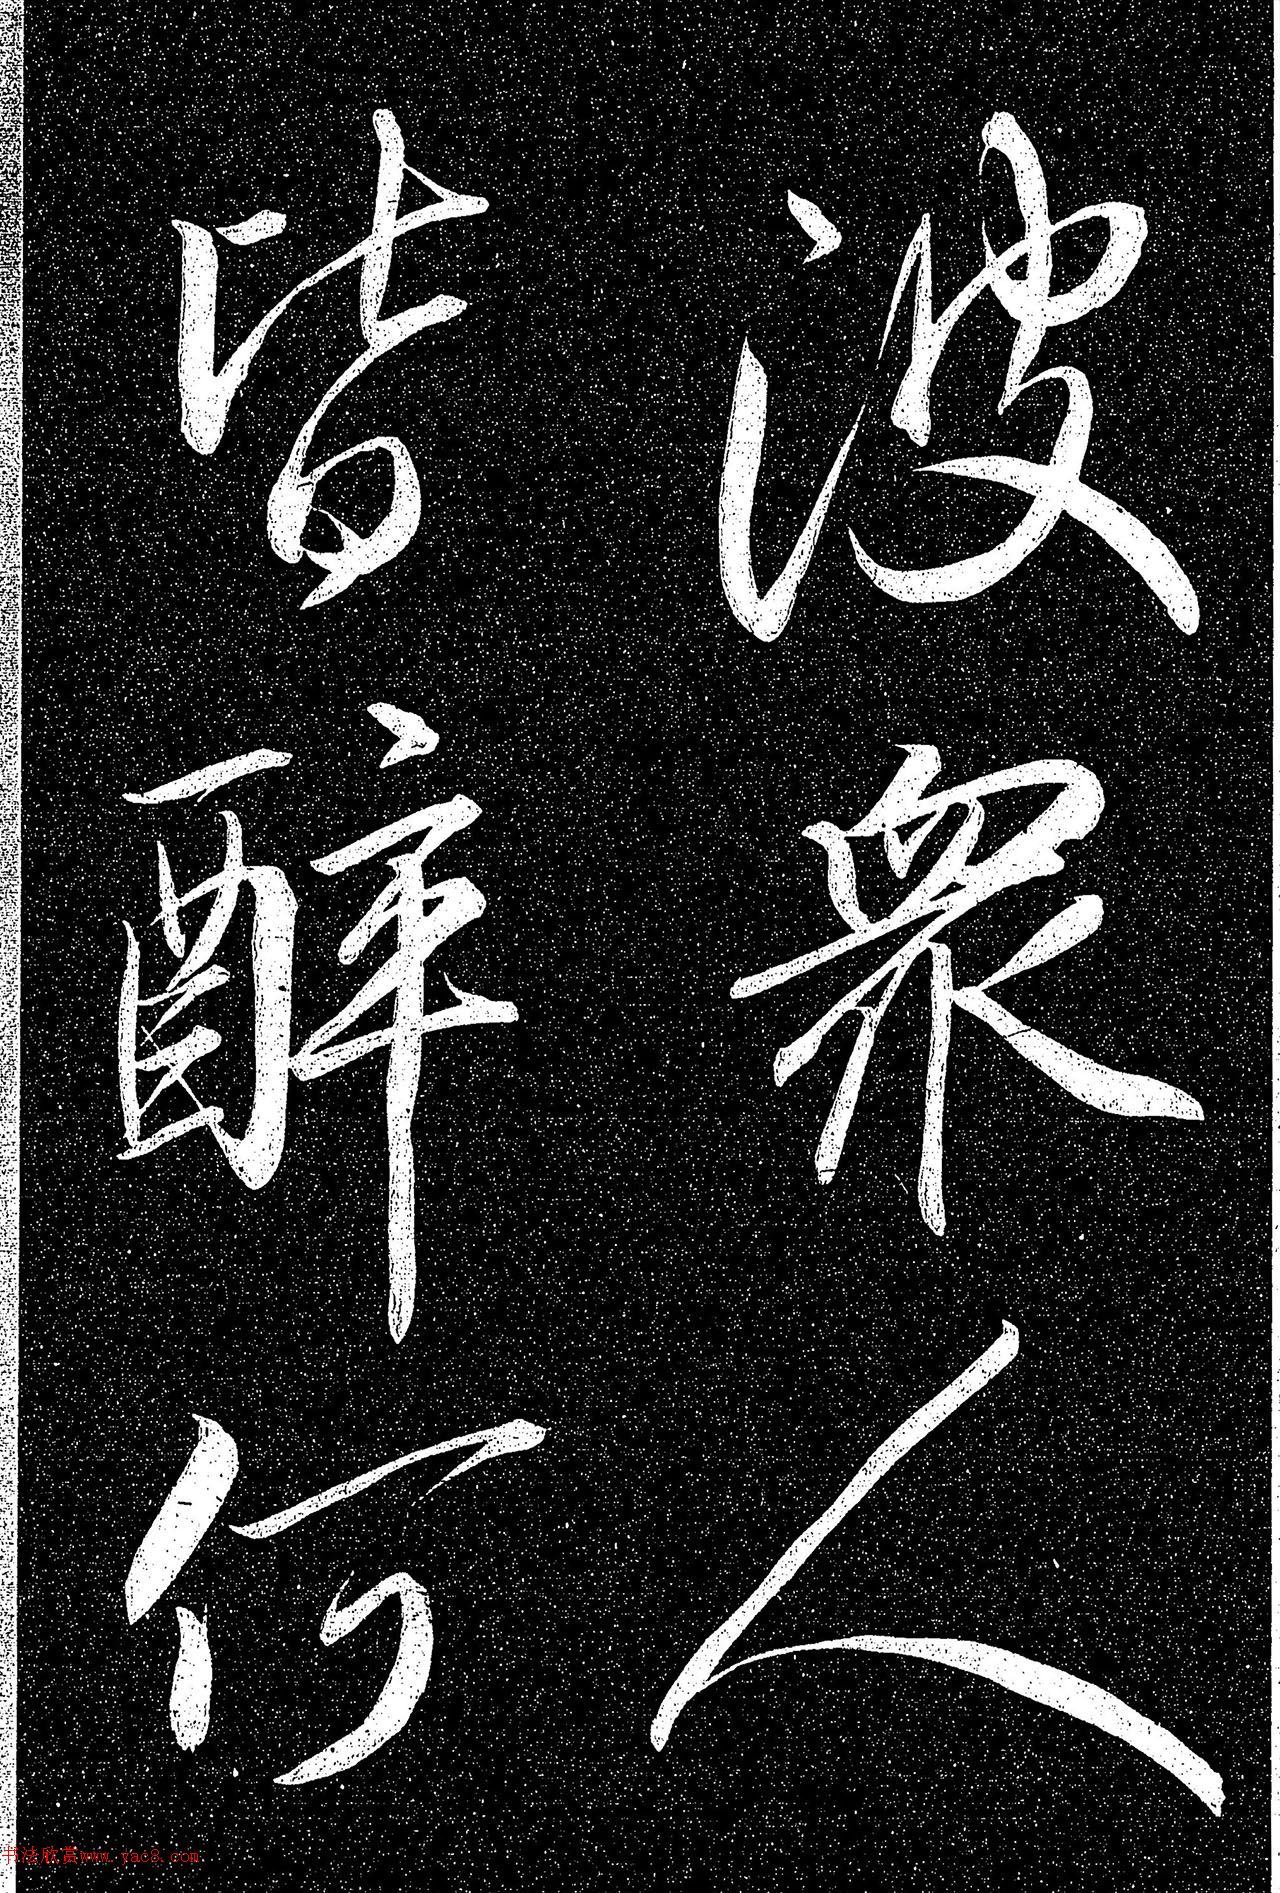 波眾人
皆醉何
书法欣赏www.yac8.com